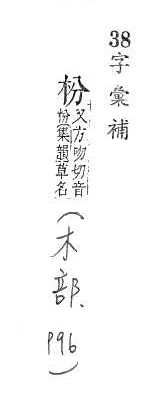 38字彙補
枌又方吻切音
粉集韻草名
(木部.
P96)